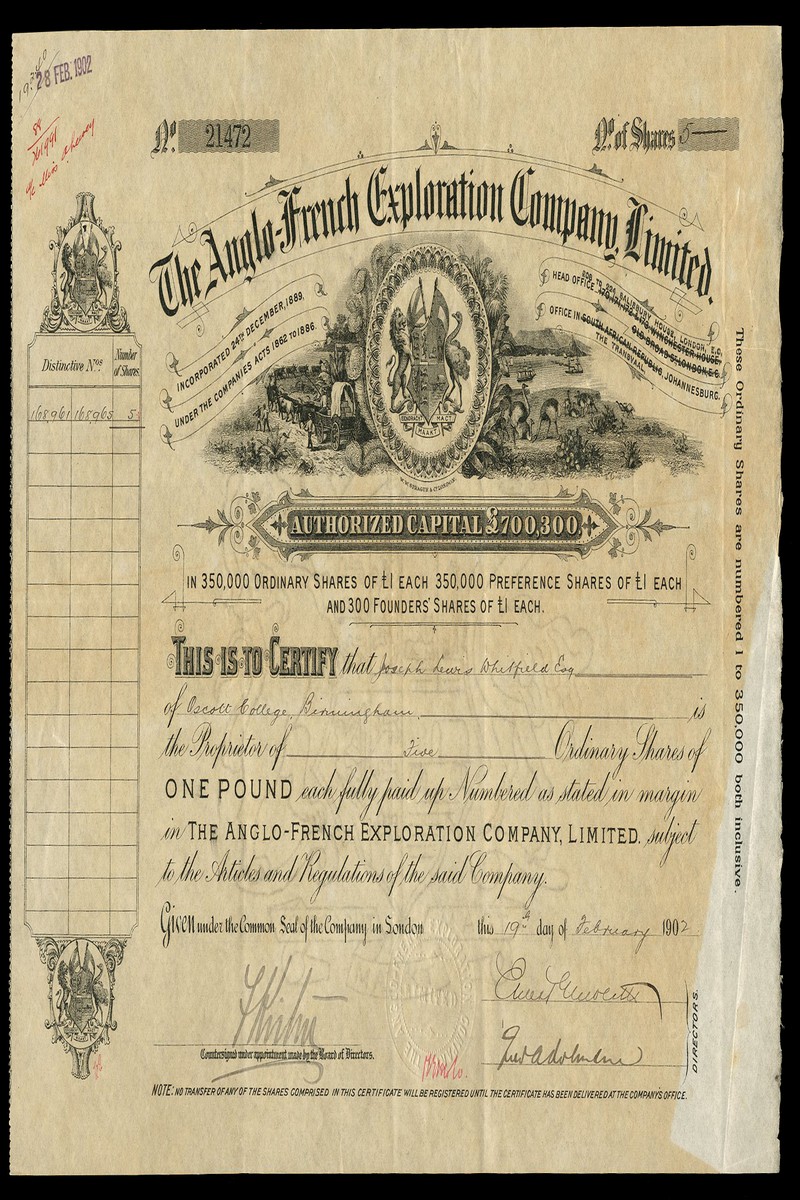 28 FEB. 1902
Nº 21472
Nº of Shares 5
The Anglo-French Exploration Company, Limited.
INCORPORATED 24TH DECEMBER, 1889,
UNDER THE COMPANIES ACTS 1862 TO 1886.
208 TO 224, SALISBURY HOUSE, LONDON, E.C.
HEAD OFFICE WINCHESTER HOUSE,
OLD BROAD ST LONDON E.C.
OFFICE IN SOUTH AFRICAN REPUBLIC, JOHANNESBURG.
THE TRANSVAAL
EENDRACHT MAAKT MAGT
AUTHORIZED CAPITAL £700,300
IN 350,000 ORDINARY SHARES OF £1 EACH 350,000 PREFERENCE SHARES OF £1 EACH
AND 300 FOUNDERS' SHARES OF £1 EACH.
Distinctive Nºs Number of Shares
168961 168965 5
THIS IS TO CERTIFY that Joseph Lewis Whitfield Esq
of Oscott College, Birmingham, is
the Proprietor of Five Ordinary Shares of
ONE POUND each fully paid up Numbered as stated in margin
in THE ANGLO-FRENCH EXPLORATION COMPANY, LIMITED. subject
to the Articles and Regulations of the said Company.
Given under the Common Seal of the Company in London this 19th day of February 1902
DIRECTORS.
Countersigned under appointment made by the Board of Directors.
NOTE: NO TRANSFER OF ANY OF THE SHARES COMPRISED IN THIS CERTIFICATE WILL BE REGISTERED UNTIL THE CERTIFICATE HAS BEEN DELIVERED AT THE COMPANY'S OFFICE.
These Ordinary Shares are numbered 1 to 350,000 both inclusive.